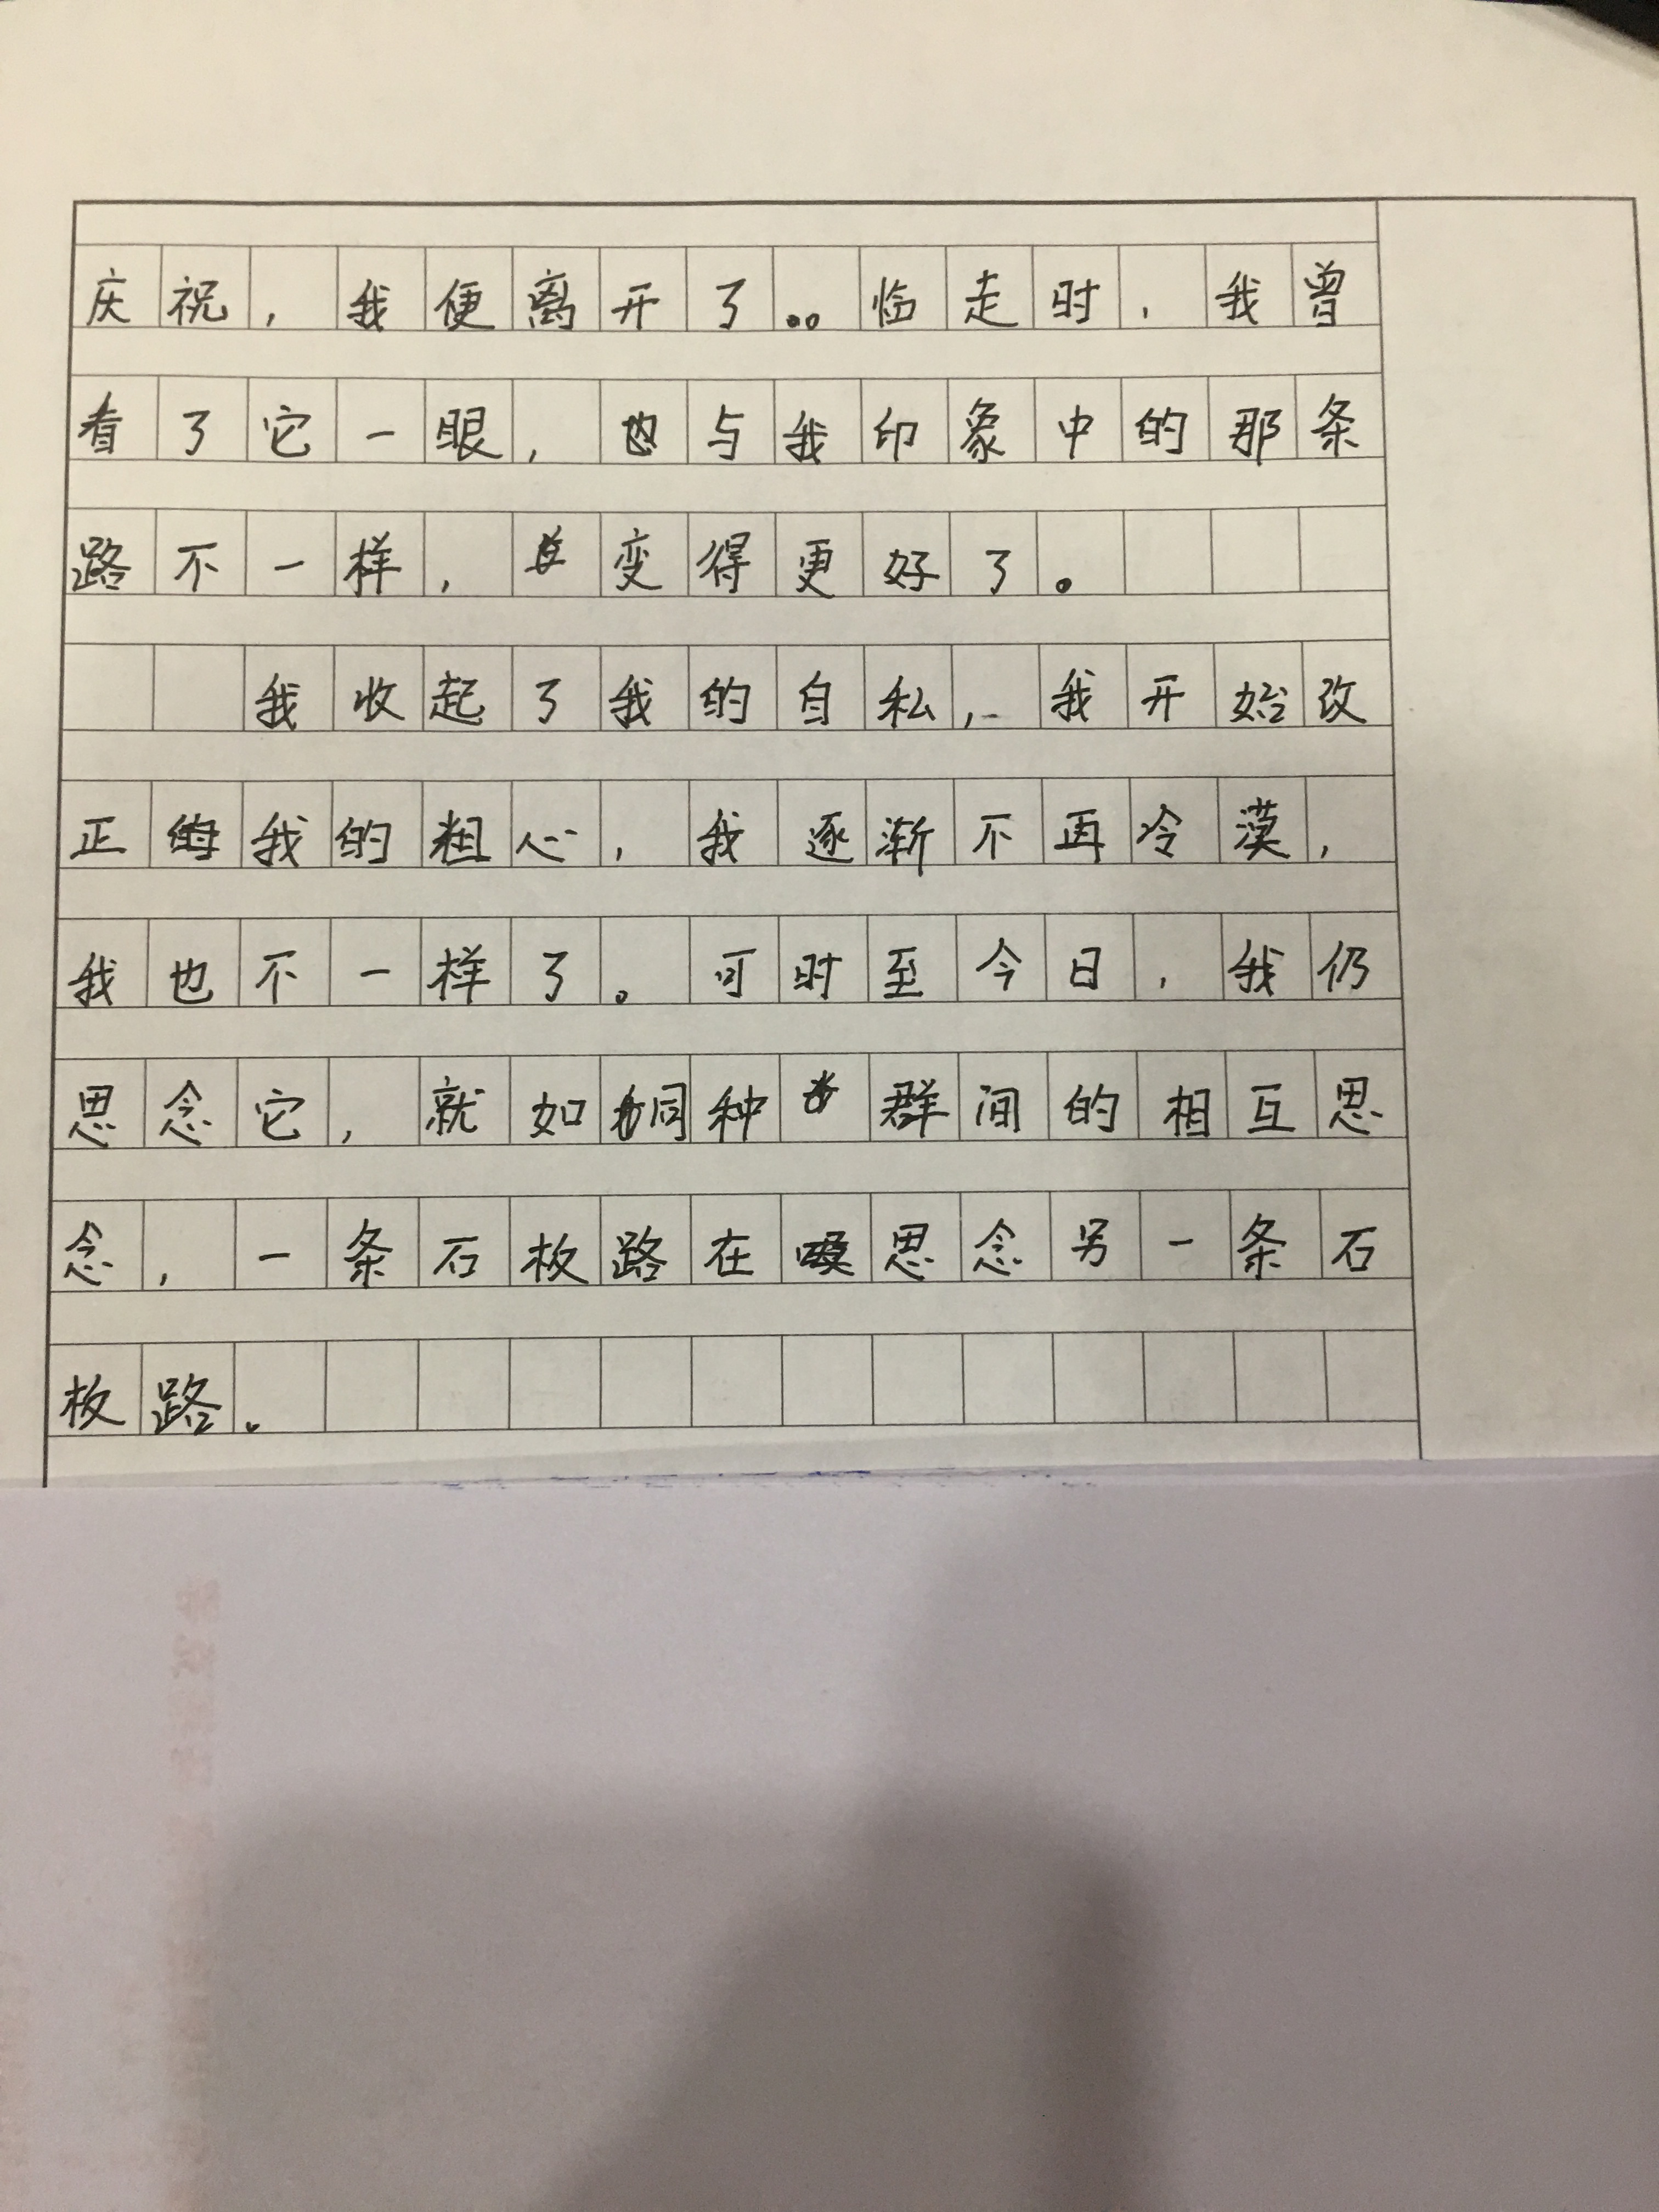 庆祝，我便离开了。。临走时，我曾
看了它一眼，与我印象中的那条
路不一样，变得更好了。
我收起了我的自私，我开始改
正我的粗心，我逐渐不再冷漠，
我也不一样了。可时至今日，我仍
思念它，就如同种群间的相互思
念，一条石板路在思念另一条石
板路。